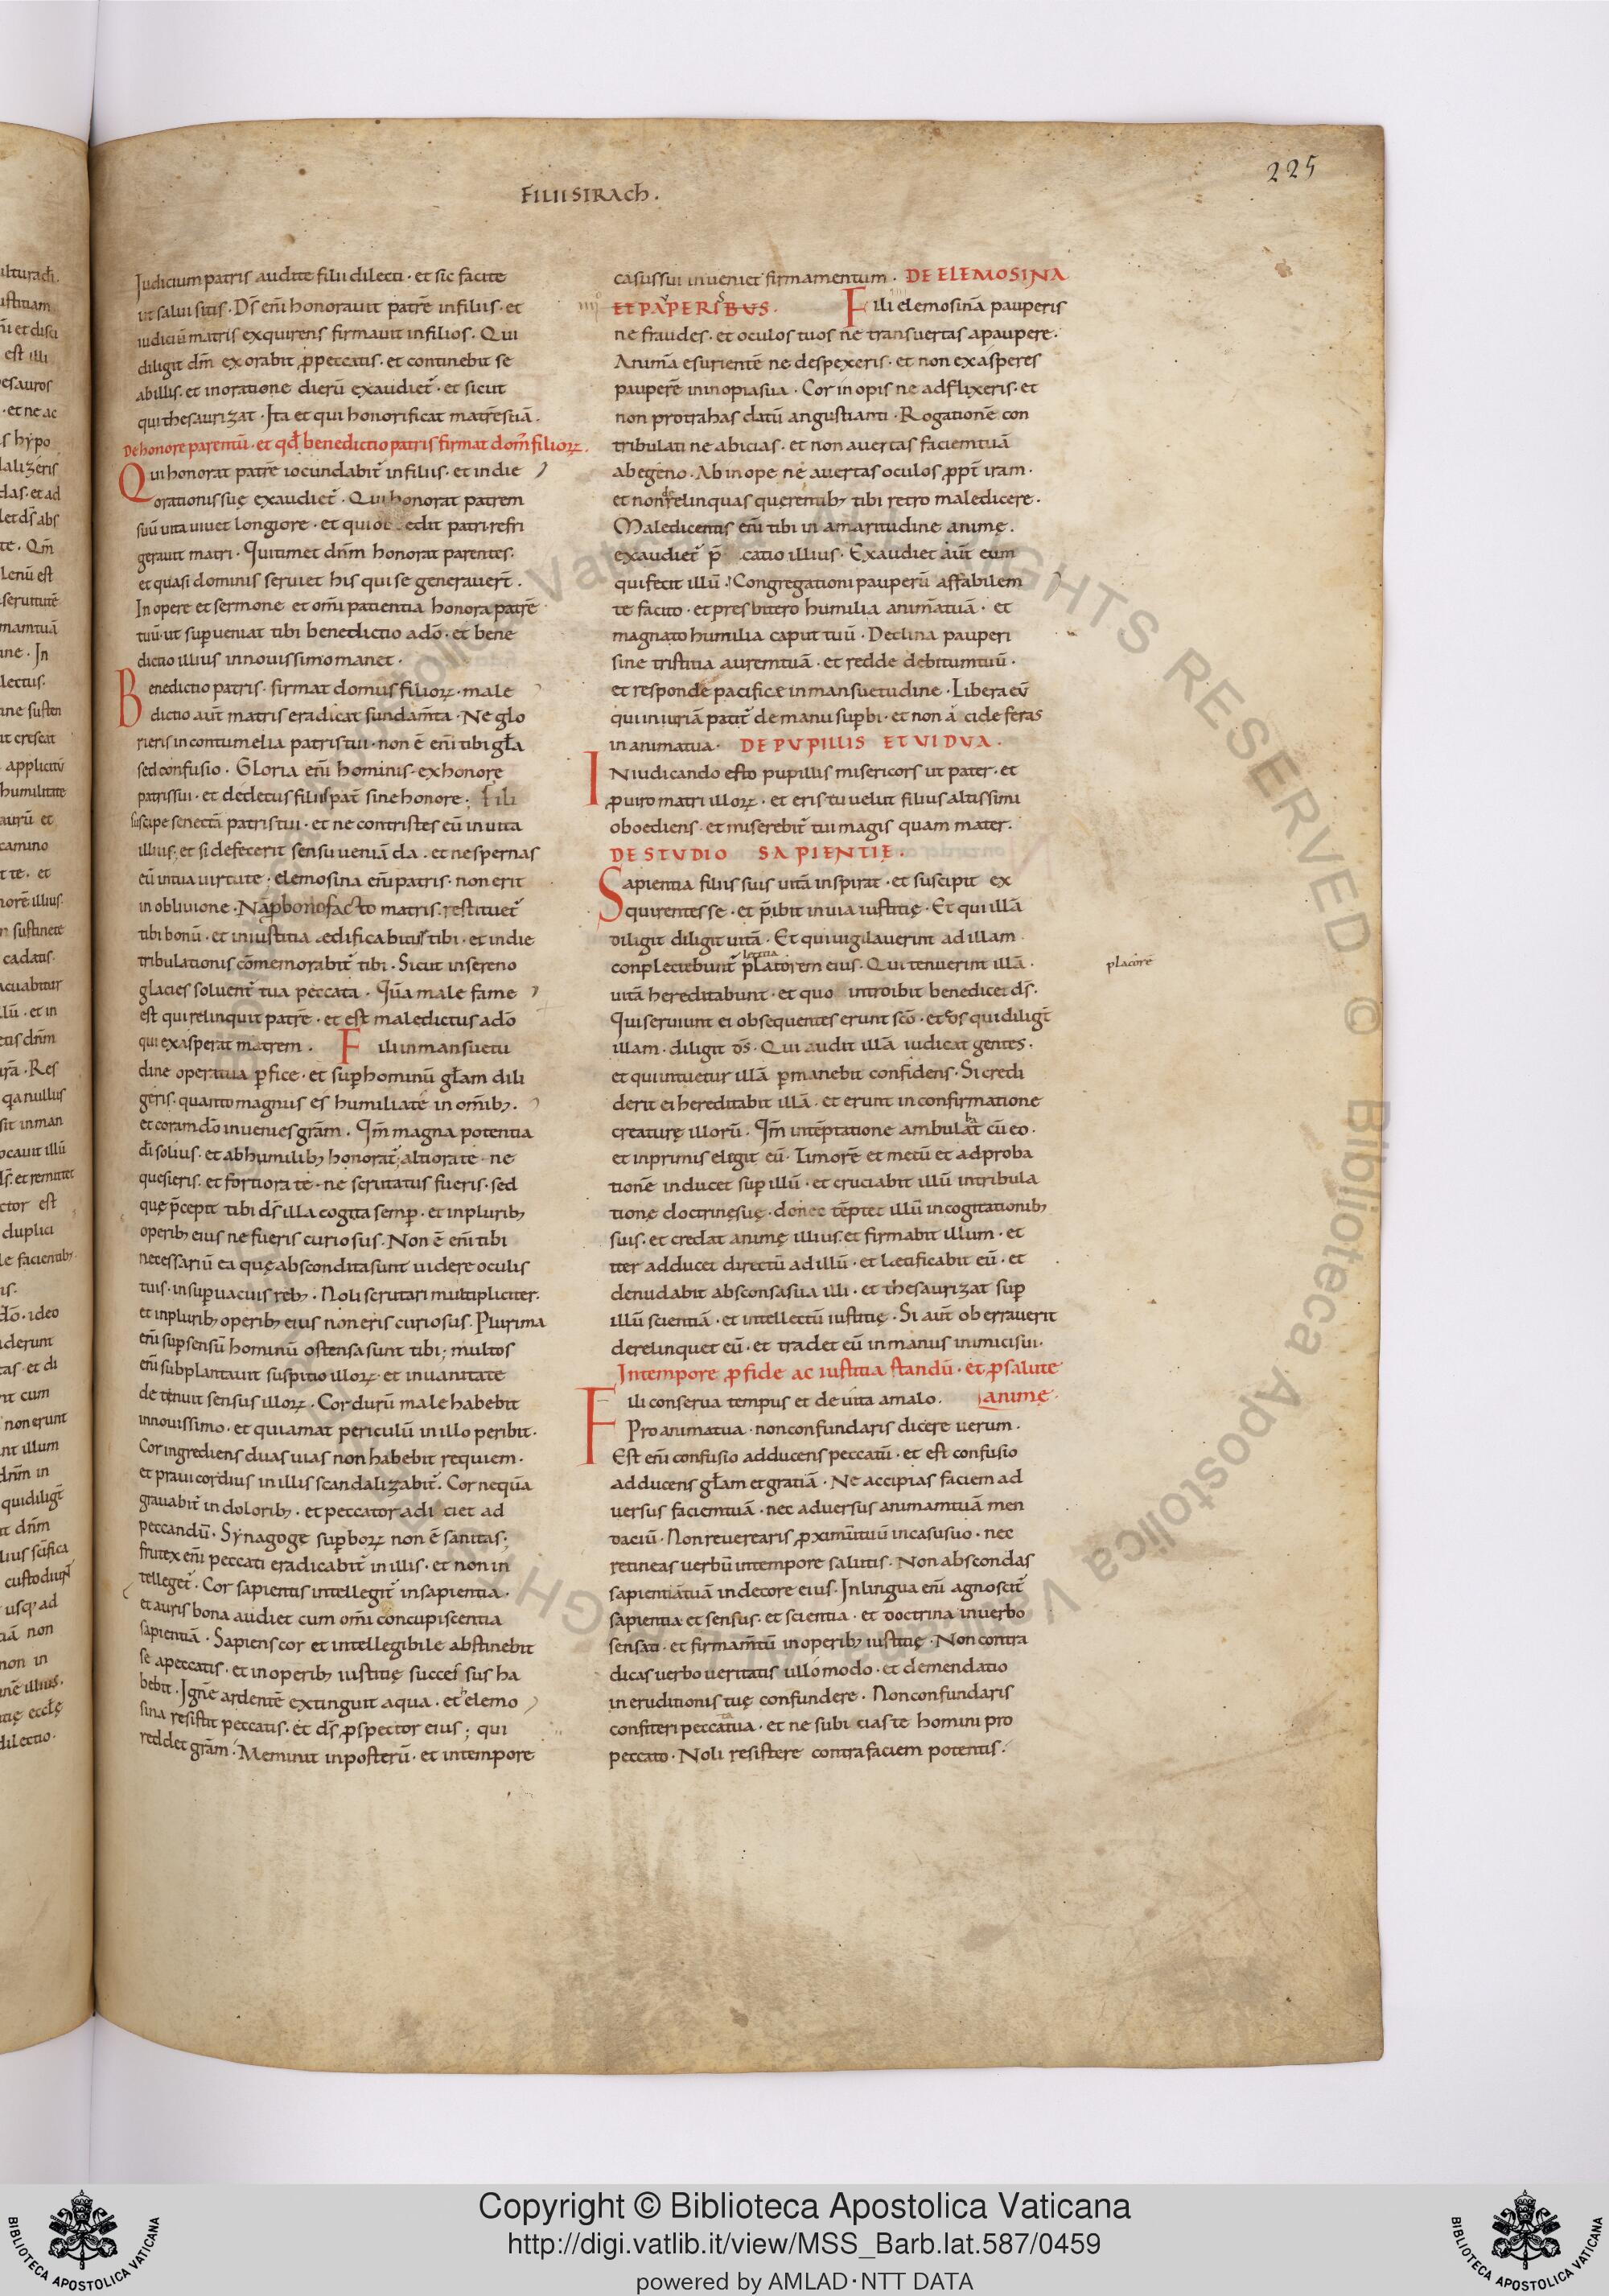 225
FILII SIRACh.
Iudicium patris audite filii dilecti · et sic facite
ut salui sitis · Ds̄ eni̅ honorauit patrē in filiis · et
iudiciū matris exquirens firmauit in filios. Qui
diligit dm̄ exorabit ꝓ peccatis · et continebit se
ab illis · et in oratione dierū exaudiet᷑ · et sicut
qui thesaurizat · Ita et qui honorificat matrē suā.
De honore parentū · et qd̄ benedictio patris firmat dom̄ filioꝝ.
Qui honorat patrē iocundabit᷑ in filiis · et in die
orationis suę exaudiet᷑ · Qui honorat patrem
suū uita uiuet longiore · et qui edit patri refri
gerauit matri · Qui timet dn̄m honorat parentes.
et quasi dominis seruiet his qui se generauer̄t.
In opere et sermone et om̄i patientia honora patrē
tuū · ut sup̄ueniat tibi benedictio a dō · et bene
dictio illius in nouissimo manet.
Benedictio patris · firmat domus filioꝝ · male
dictio aut̄ matris eradicat fundam̄ta · Ne glo
rieris in contumelia patris tui · non ē eni̅ tibi gła
sed confusio · Gloria eni̅ hominis · ex honore
patris sui · et dedecus filii pat̄ sine honore · Fili
suscipe senectā patris tui · et ne contristes eū in uita
illius · et si defecerit sensu ueniā da · et ne spernas
eū in tua uirtute · elemosina eni̅ patris · non erit
in obliuione · Nā ꝓ bono facto matris · restituet᷑
tibi bonū · et in iustitia ædificabitur tibi · et in die
tribulationis cōmemorabit᷑ tibi · Sicut in sereno
glacies soluent᷑ tua peccata · Quā male fame
est qui relinquit patrē · et est maledictus a dō
qui exasperat matrem · Fili in mansuetu
dine opera tua ꝑfice · et sup̄ hominū głam dili
geris · quanto magnus es humilia te in om̄ib;.
et coram dō inuenies grām. Qm̄ magna potentia
dī solius · et ab humilib; honorat᷑ · altiora te ne
quesieris · et fortiora te · ne scrutatus fueris · sed
quę p̄cepit tibi ds̄ illa cogita semp̄ · et in plurib;
operib; eius ne fueris curiosus · Non ē eni̅ tibi
necessariū ea quę abscondita sunt uidere oculis
tuis · in sup̄uacuis reb; · Noli scrutari multipliciter.
et in plurib; operib; eius non eris curiosus · Plurima
eni̅ sup̄ sensū hominū ostensa sunt tibi; multos
eni̅ subplantauit suspitio illoꝝ · et in uanitate
detenuit sensus illoꝝ · Cor durū male habebit
in nouissimo · et qui amat periculū in illo peribit.
Cor ingrediens duas uias non habebit requiem.
et praui cordius in illis scandalizabit᷑. Cor neqūa
grauabit᷑ in dolorib; · et peccator adi ciet ad
peccandū · Synagoge sup̄boꝝ non ē sanitas;
frutex eni̅ peccati eradicabit᷑ in illis · et non in
telleget᷑ · Cor sapientis intellegit᷑ in sapientia.
et auris bona audiet cum om̄i concupiscentia
sapientiā · Sapiens cor et intellegibile abstinebit
se a peccatis · et in operib; iustitię successus ha
bebit · Ignē ardentē extinguit aqua · et elemo
sina resistit peccatis · et ds̄ ꝓspector eius; qui
reddet grām · Meminit in posterū · et in tempore
casus sui inueniet firmamentum · DE ELEMOSINA
ET PAVPERIBVS. Fili elemosinā pauperis
ne fraudes · et oculos tuos ne transuertas a paupere.
Animā esurientē ne despexeris · et non exasperes
pauperē in inopia sua · Cor inopis ne adflixeris · et
non protrahas datū angustianti · Rogationē con
tribulati ne abicias · et non auertas faciem tuā
ab egeno · Ab inope ne auertas oculos ꝓpt̄ iram.
et non relinquas querentib; tibi retro maledicere.
Maledicentis eni̅ tibi in amaritudine animę.
exaudiet᷑ p̄ catio illius · Exaudiet aut̄ eum
qui fecit illū · Congregationi pauperū affabilem
te facito · et presbitero humilia animā tuā · et
magnato humilia caput tuū · Declina pauperi
sine tristitia aurem tuā · et redde debitum tuū.
et responde pacificæ in mansuetudine · Libera eū
qui iniuriā patit᷑ de manu sup̄bi · et non acide feras
in anima tua · DE PVPILLIS ET VIDVA.
In iudicando esto pupillis misericors ut pater · et
ꝓ uiro matri illoꝝ · et eris tu uelut filius altissimi
oboediens · et miserebit᷑ tui magis quam mater.
DE STVDIO SAPIENTIE.
Sapientia filiis suis uitā inspirat · et suscipit ex
quirentes se · et p̄ibit in uia iustitię · Et qui illā
diligit diligit uitā · Et qui uigilauerint ad illam
conplectebunt᷑ placorem eius · Qui tenuerint illā.
placorē
uitā hereditabunt · et quo introibit benedicet ds̄.
Qui seruiunt ei obsequentes erunt sc̄o · et eos qui diligt̄
illam · diligit ds̄ · Qui audit illā iudicat gentes.
et qui intuetur illā ꝑmanebit confidens · Si credi
derit ei hereditabit illā · et erunt in confirmatione
creaturę illorū · Qm̄ in tēptatione ambulat cū eo.
et in primis elegit eū · Timorē et metū et adproba
tionē inducet sup̄ illū · et cruciabit illū in tribula
tione doctrinę suę · donec tēptet illū in cogitationib;
suis · et credat animę illius · et firmabit illum · et
iter adducet directū ad illū · et lætificabit eū · et
denudabit absconsa sua illi · et thesaurizat sup̄
illū scientiā · et intellectū iustitię · Si aut̄ oberrauerit
derelinquet eū · et tradet eū in manus inimici sui.
In tempore ꝓ fide ac iustitia standū · et ꝓ salute
animę.
Fili conserua tempus et deuita a malo.
Pro anima tua · non confundaris dicere uerum.
Est eni̅ confusio adducens peccatū · et est confusio
adducens głam et gratiā · Ne accipias faciem ad
uersus faciem tuā · nec aduersus animam tuā men
daciū · Non reuerearis ꝓximū tuū in casu suo · nec
retineas uerbū in tempore salutis · Non abscondas
sapientiā tuā in decore eius · In lingua eni̅ agnoscit᷑
sapientia et sensus · et scientia · et doctrina in uerbo
sensati · et firmam̄tū in operib; iustitię · Non contra
dicas uerbo ueritatis ullo modo · et de mendatio
ineruditionis tuę confundere · Non confundaris
confiteri peccata tua · et ne subi cias te homini pro
peccato · Noli resistere contra faciem potentis.
Copyright © Biblioteca Apostolica Vaticana
http://digi.vatlib.it/view/MSS_Barb.lat.587/0459
powered by AMLAD·NTT DATA